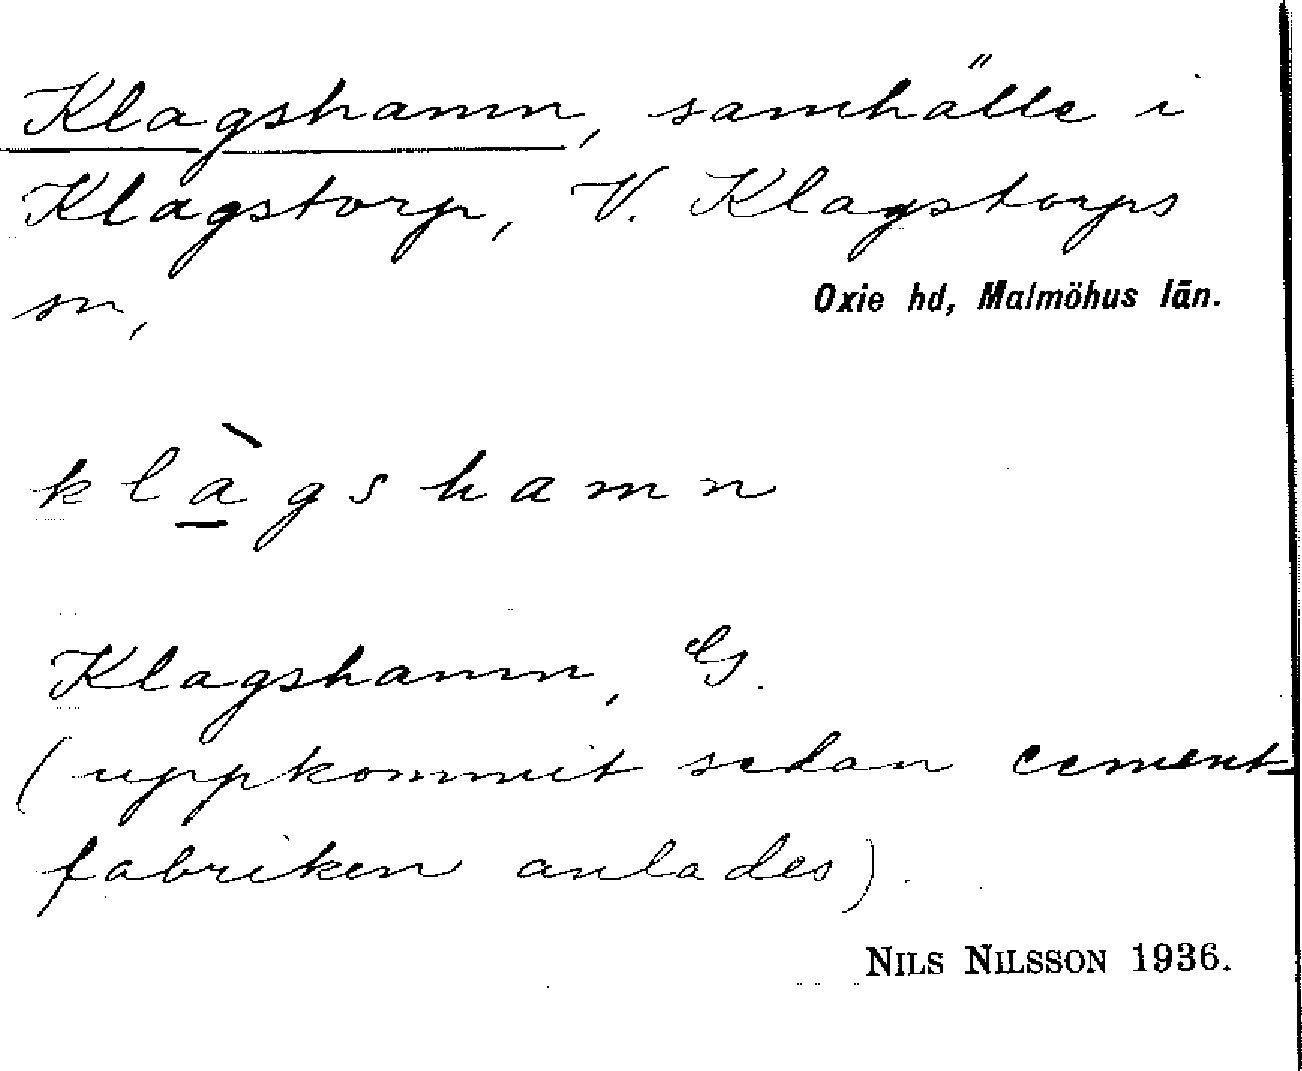 Klagshamn, samhälle i
Klagstorp, V. Klagstorps
sn,
Oxie hd, Malmöhus län.
klàgshamn
Klagshamn, G.
(uppkommit sedan cement-
fabriken anlades).
NILS NILSSON 1936.